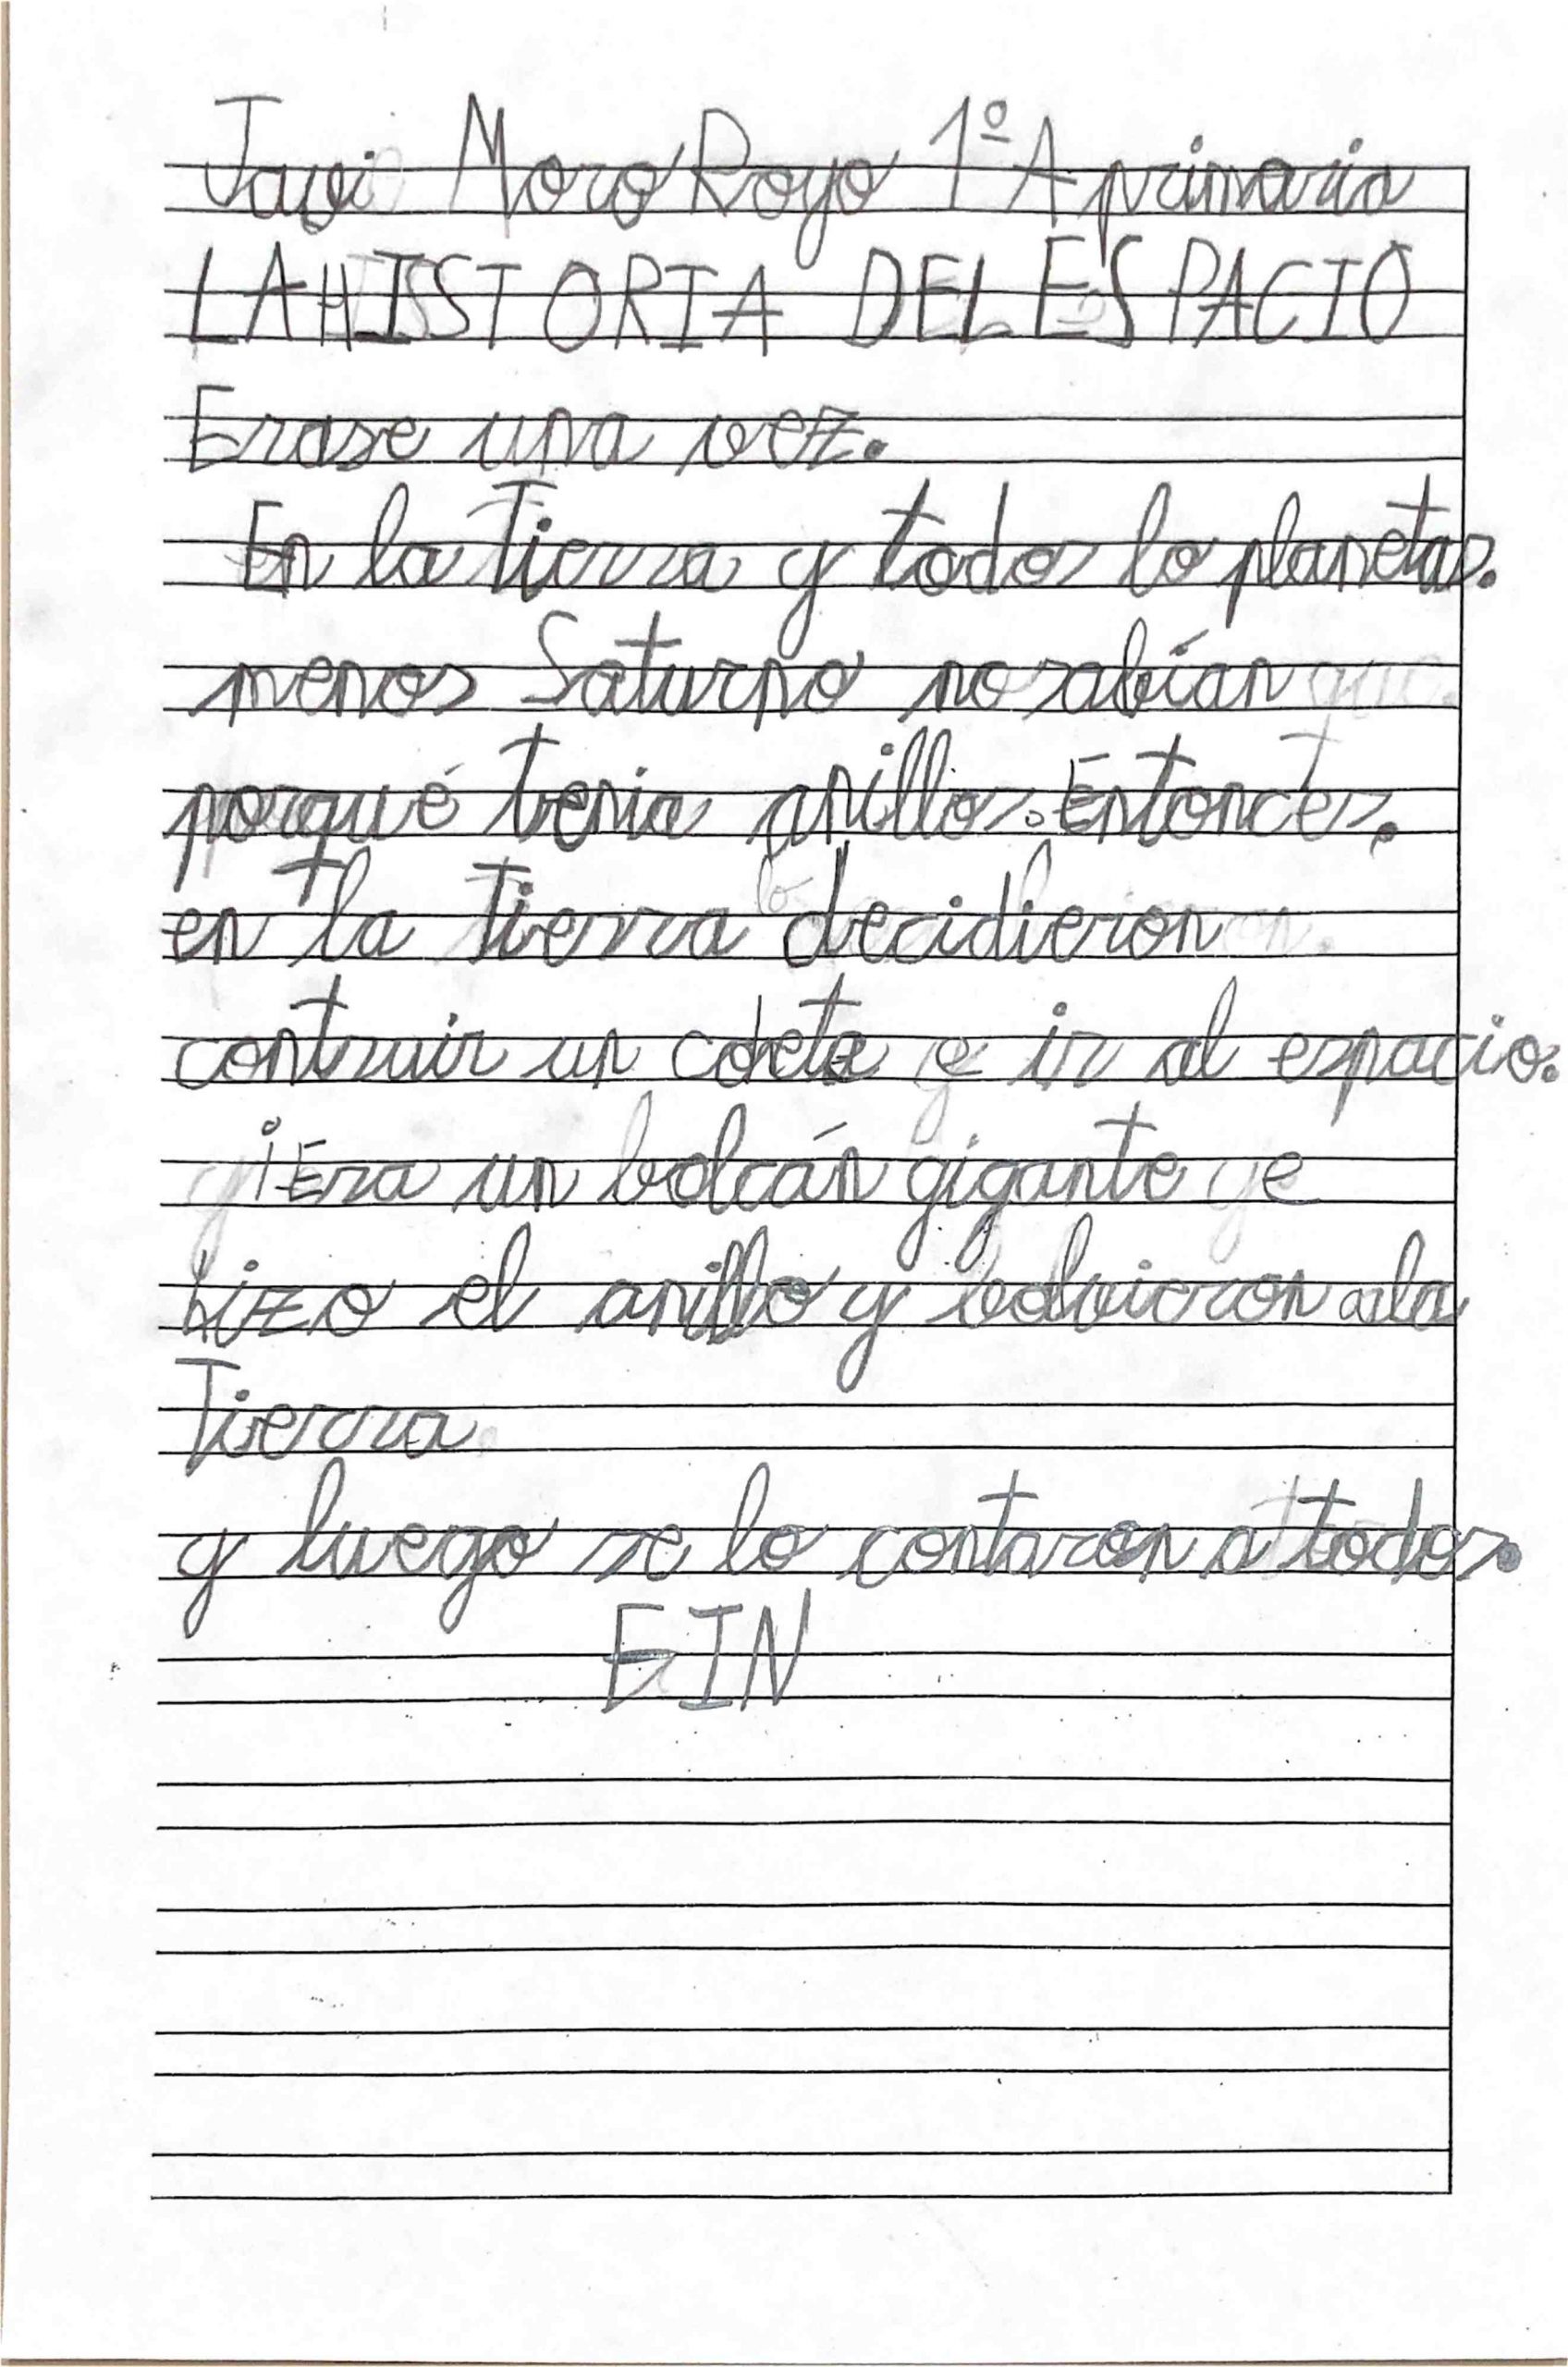 Javi Moro Royo 1º A primaria
LA HISTORIA DEL ESPACIO
Erase una vez.
En la Tierra y todos lo planetas.
menos Saturno no sabían
porqué tenia anillos. Entonces.
en la Tierra decidieron
contruir un cohete e ir al espacio.
¡Era un bolcán gigante e
hizo el anillo y bolvieron a la
Tierra
y luego se lo contaron a todos.
FIN